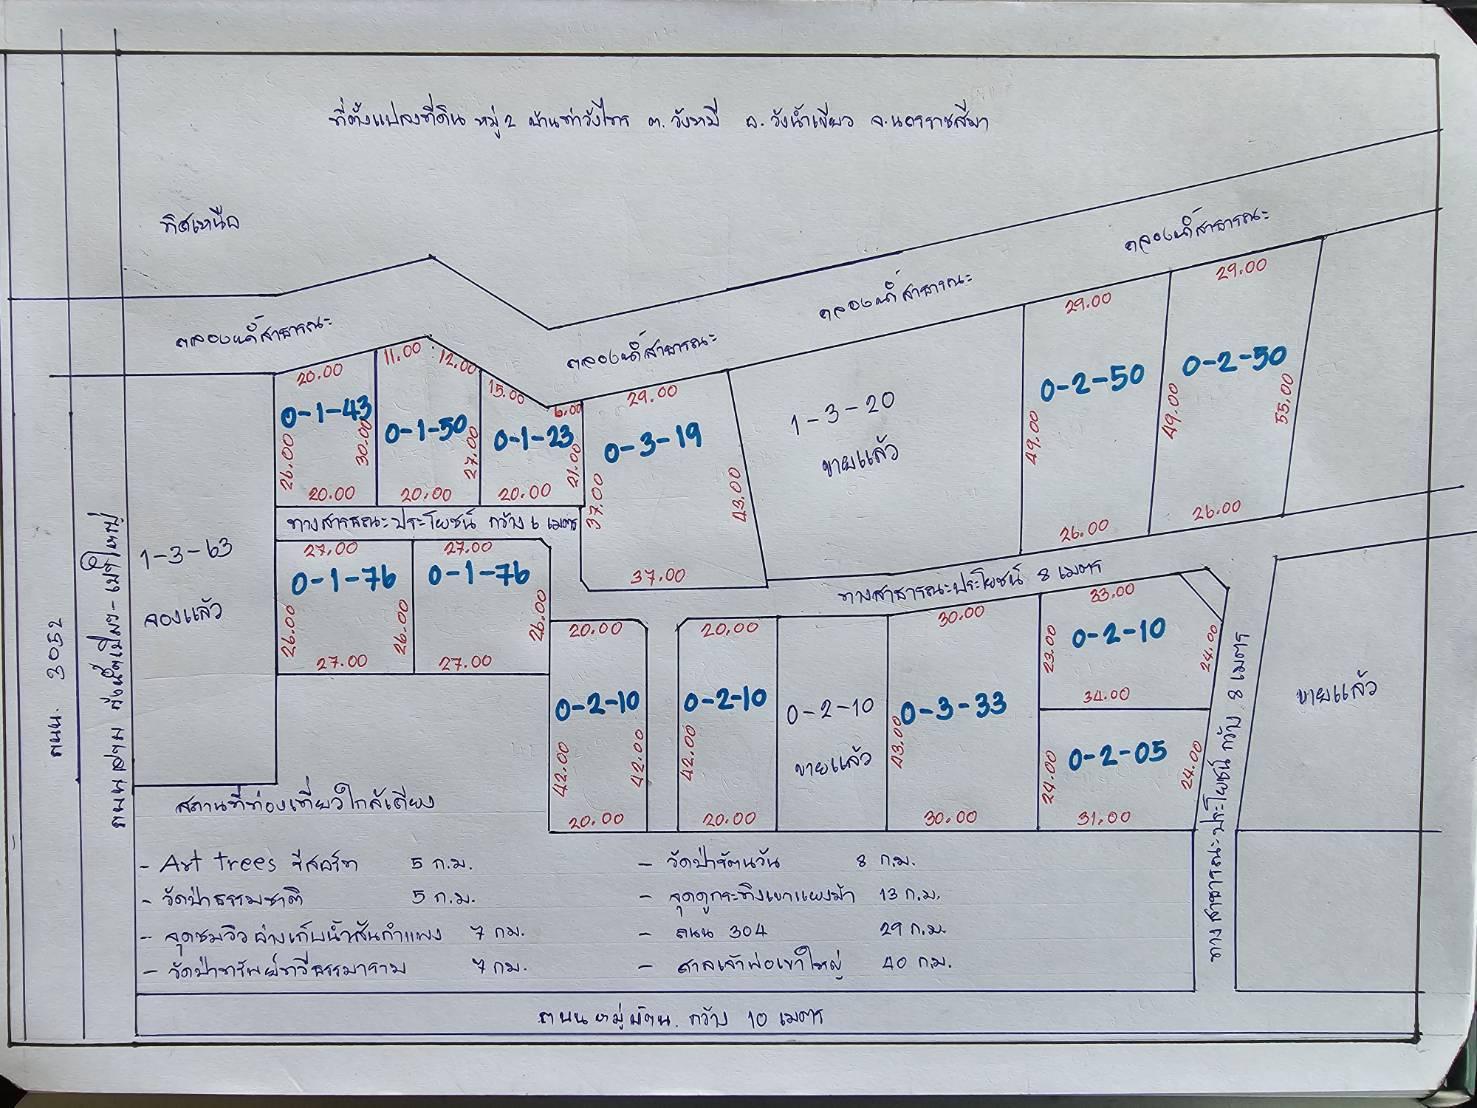 ที่ตั้งแปลงที่ดิน หมู่ 2 บ้านท่าวังไทร ต. วังหมี อ. วังน้ำเขียว จ.นครราชสีมา
ทิศเหนือ
คลองน้ำสาธารณะ
คลองน้ำสาธารณะ
คลองน้ำสาธารณะ
คลองน้ำสาธารณะ
29.00
29.00
0-2-50
0-2-50
49.00
49.00
55.00
26.00
26.00
20.00
11.00
12.00
15.00
6.00
29.00
0-1-43
0-1-50
0-1-23
0-3-19
26.00
30.00
27.00
21.00
37.00
43.00
20.00
20.00
20.00
37.00
1-3-20
ขายแล้ว
ทางสาธารณะประโยชน์ กว้าง 6 เมตร
1-3-63
จองแล้ว
27.00
27.00
0-1-76
0-1-76
26.00
26.00
26.00
27.00
27.00
ทางสาธารณะประโยชน์ 8 เมตร
20.00
20.00
30.00
33.00
0-2-10
0-2-10
0-2-10
ขายแล้ว
0-3-33
0-2-10
23.00
24.00
34.00
42.00
42.00
42.00
43.00
0-2-05
24.00
24.00
20.00
20.00
30.00
31.00
ขายแล้ว
ทางสาธารณะประโยชน์ กว้าง 8 เมตร
ถนน 3052
สถานที่ท่องเที่ยวใกล้เคียง
- Art trees รีสอร์ท 5 ก.ม.
- วัดป่าธรรมชาติ 5 ก.ม.
- จุดชมวิว อ่างเก็บน้ำสันกำแพง 7 กม.
- วัดป่าทรัพย์ทวีธรรมาราม 7 กม.
- วัดป่ารัตนวัน 8 ก.ม.
- จุดดูกระทิงเขาแผงม้า 13 ก.ม.
- ถนน 304 29 ก.ม.
- ศาลเจ้าพ่อเขาใหญ่ 40 ก.ม.
ถนนหมู่บ้าน กว้าง 10 เมตร